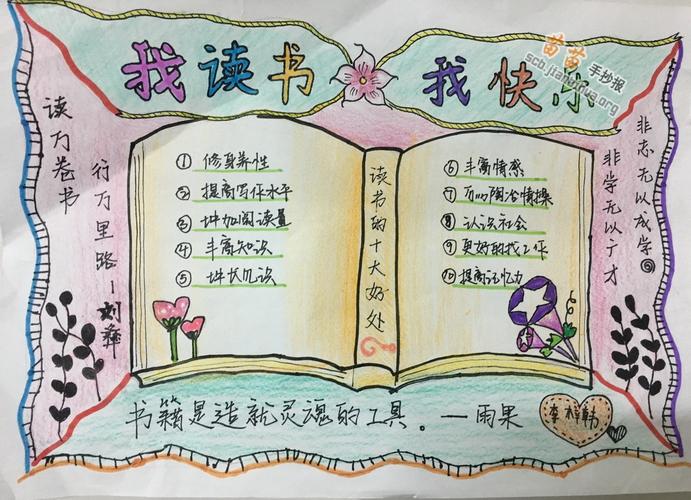 我读书 我快乐
苗苗手抄报
scb.jianihua.org
读万卷书
行万里路—刘彝
读书的十大好处
① 修身养性
② 提高写作水平
③ 增加阅读量
④ 丰富知识
⑤ 增长见识
⑥ 丰富情感
⑦ 可以陶冶情操
⑧ 认识社会
⑨ 更好的找工作
⑩ 提高记忆力
非志无以成学
非学无以广才
书籍是造就灵魂的工具。—雨果